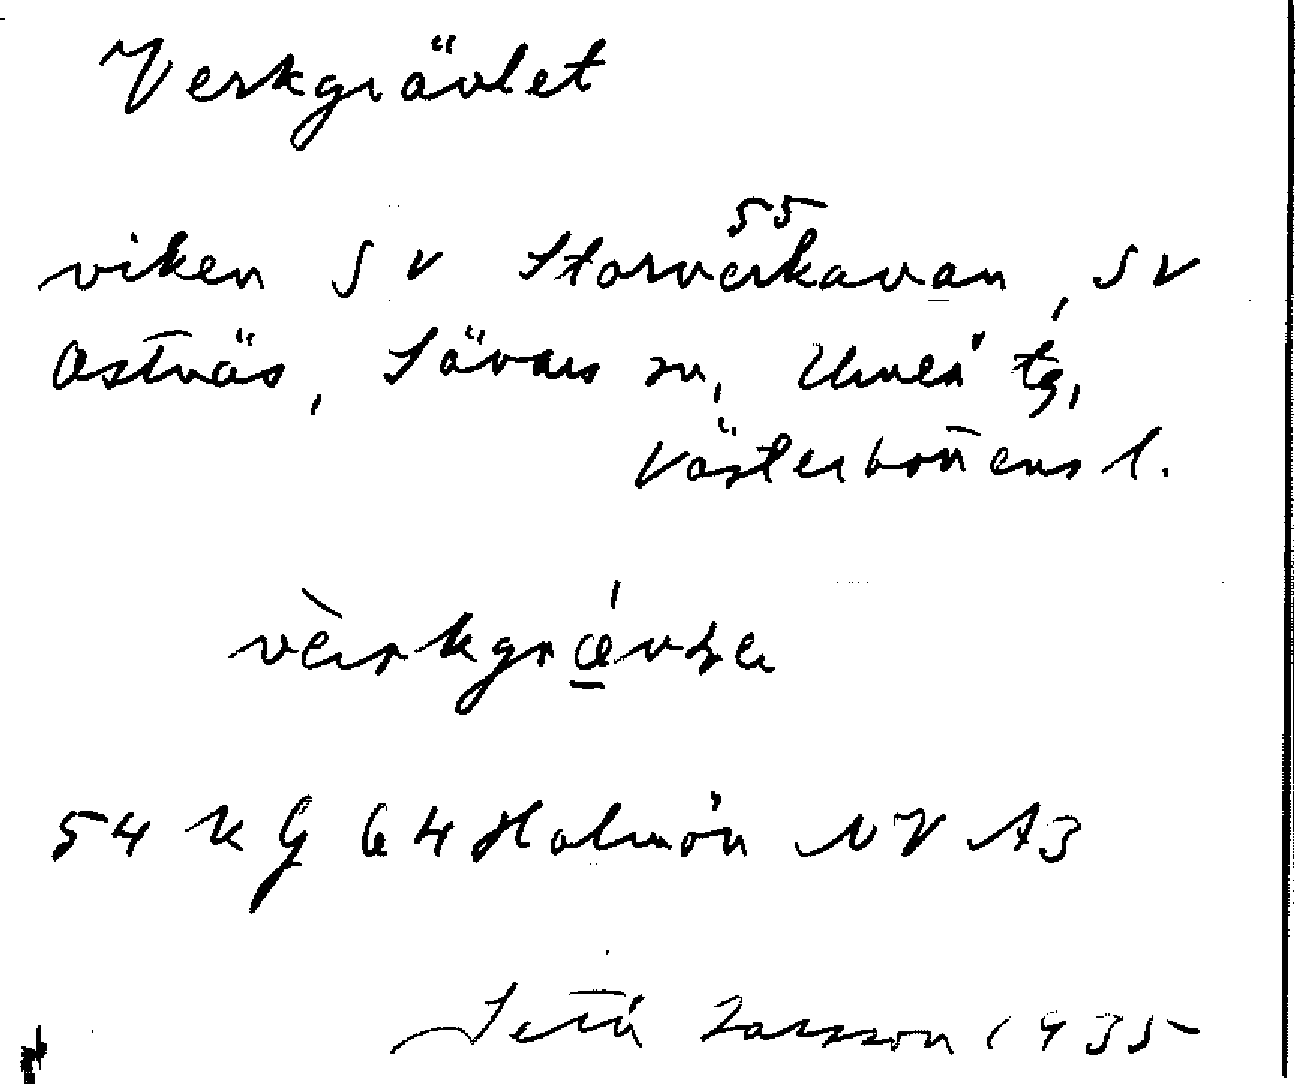 Verkgrävlet
55
viken SV Storverkavan, SV
Ostnäs, Sävars sn, Umeå tg,
Västerbottens l.
54 K G 64 Holmön NV A3
Setä Larsson 1935